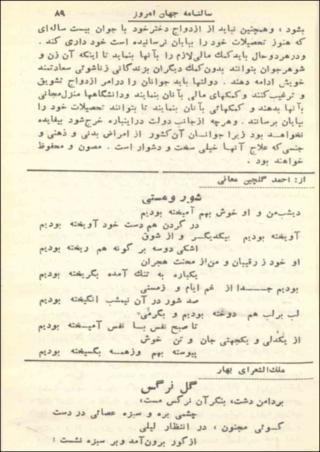 سالنامه جهان امروز
۸۹
بشود ، وهمچنین نباید از ازدواج دخترخود با جوان بیست ساله‌ای
که هنوز تحصیلات خود را بپایان نرسانیده است خود داری کند .
ودرهردوحال باید کمک مالی‌لازم را بآنها بنماید تا اینکه آن زن و
شوهرجوان بتوانند بدون‌کمک دیگران بزندگانی زناشوئی سعادتمند
خویش ادامه دهند . دولتها باید جوانان را درامر ازدواج تشویق
و ترغیب‌کنند وکمکهای مالی بآنان بنمایند ودانشگاهها منزل‌مجانی
بآنها بدهند و کمکهائی بآنان بنمایند تا بتوانند تحصیلات خود را
بپایان برسانند . وهرچه ازجانب دولت دراینباره خرج‌شود بیفایده
نخواهد بود زیرا جوانان آن‌کشور از امراض بدنی و ذهنی و
جنسی‌که علاج آنها خیلی سخت و دشوار است . مصون و محفوظ
خواهند بود .
از : احمد گلچین معانی
شور ومستی
دیشب‌من و او خوش بهم آمیخته بودیم
در گردن هم دست خود آویخته بودیم
آویخته بودیم بیکدیگر و از شوق
اشکی دوسه بر گونه هم ریخته بودیم
او خود ز رقیبان و من‌از محنت هجران
یکباره به تنگ آمده بگریخته بودیم
بودیم جدا از غم ایام و زمستی
صد شور در آن نیمشب انگیخته بودیم
لب برلب هم دوخته بودیم و بگرمی
تا صبح نفس با نفس آمیخته بودیم
از یکدلی و یکجهتی جان و تن خوش
پیوسته بهم وزهمه بگسیخته بودیم
ملک‌الشعرای بهار
گل نرگس
بردامن دشت، بنگرآن نرگس مست،
چشمی بره و سبزه عصائی در دست
گوئی مجنون ، در انتظار لیلی
ازگور برون‌آمد وبر سبزه نشست ؛